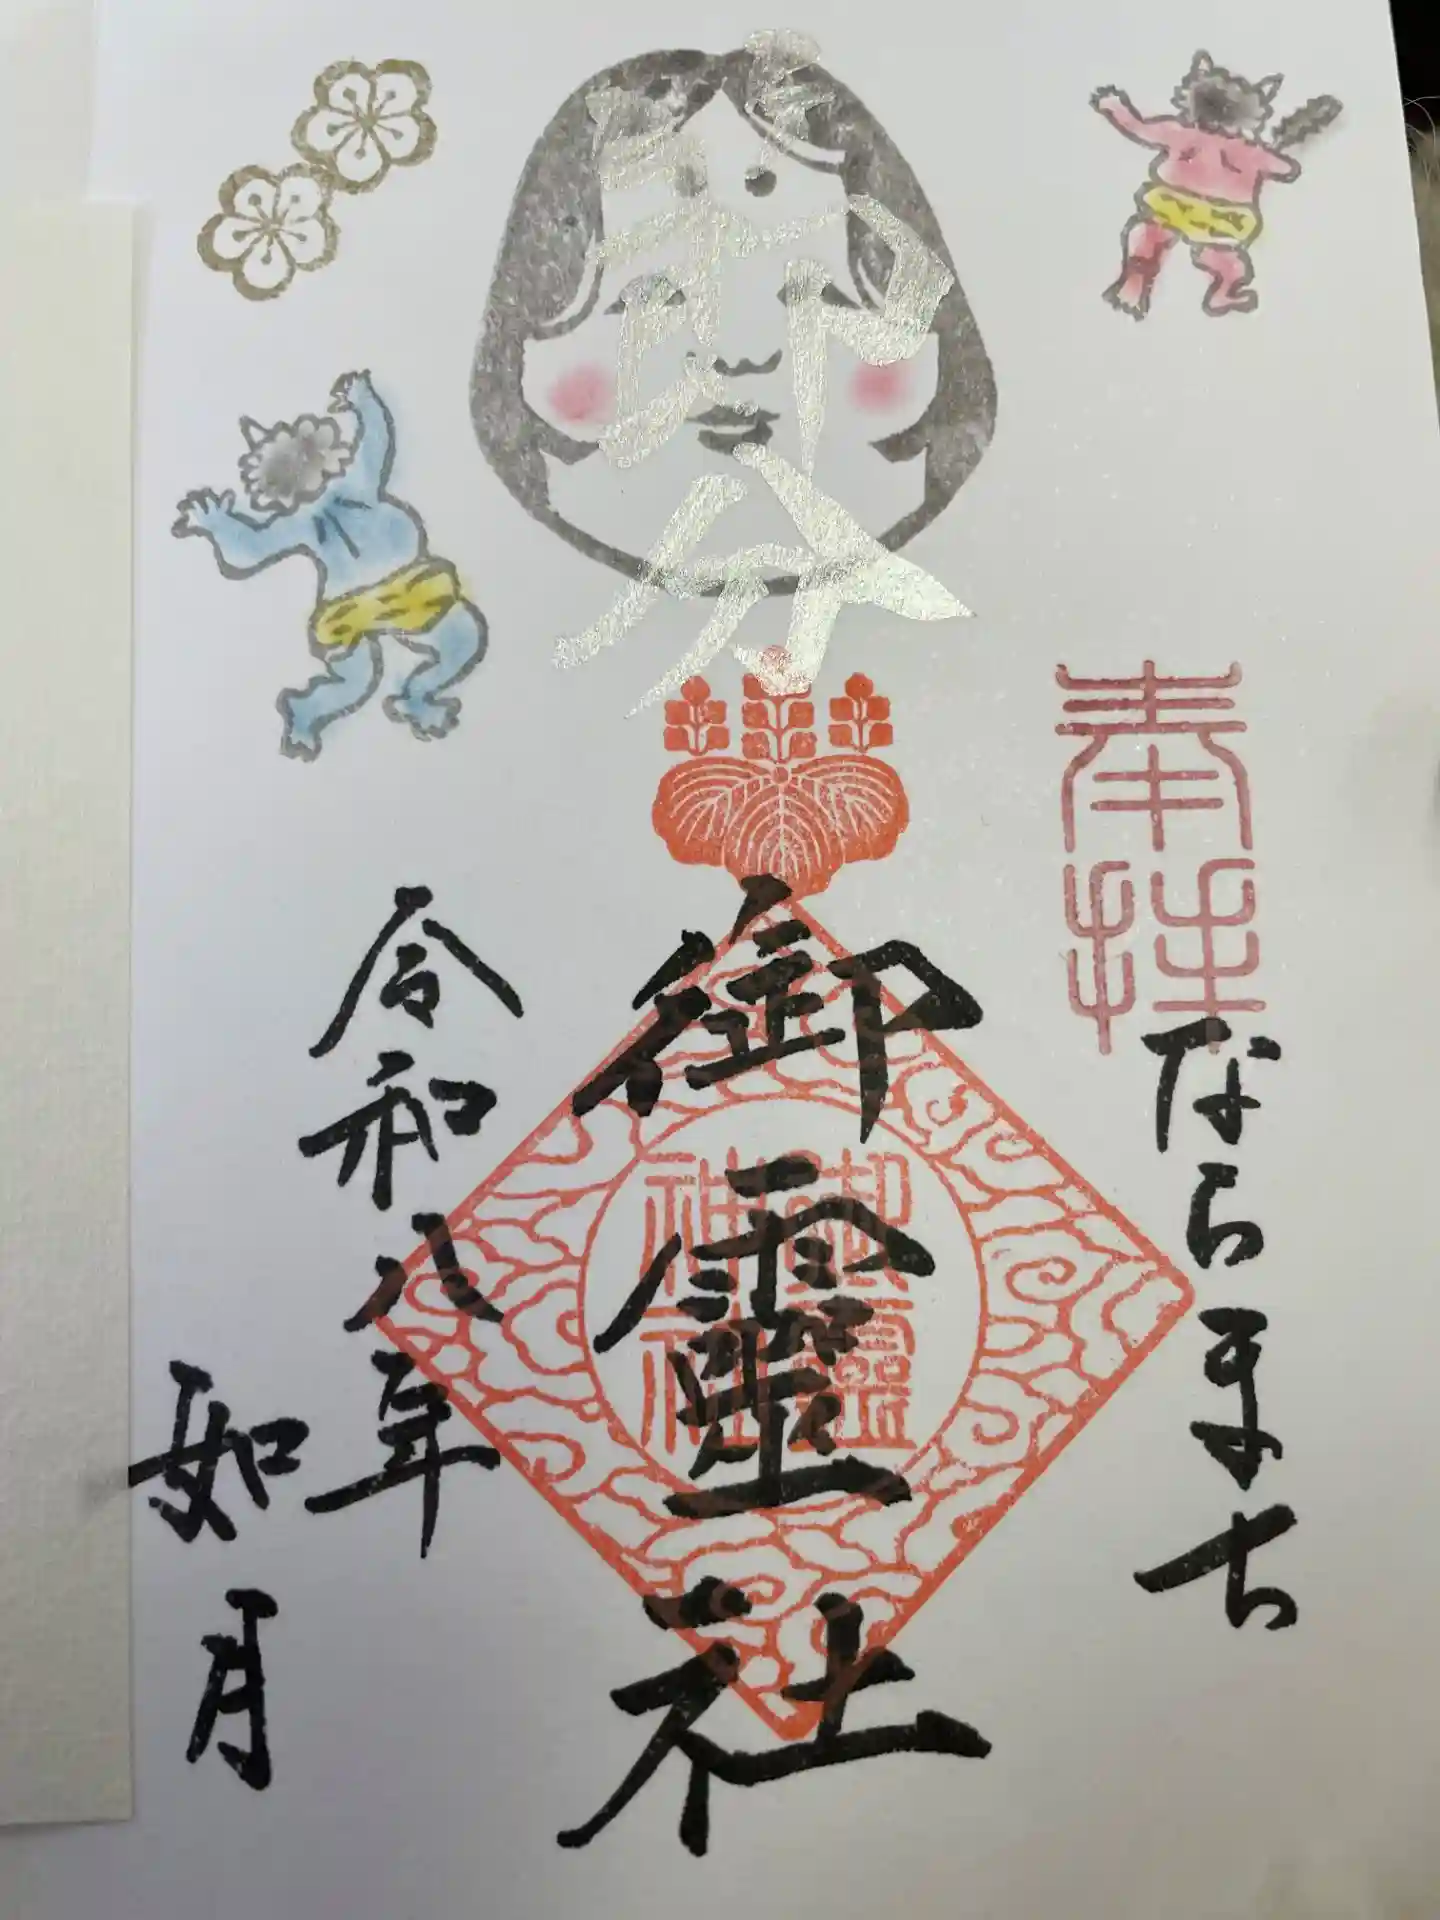 奉拝
ならまち
節分
御霊社
御霊神社
令和八年
如月